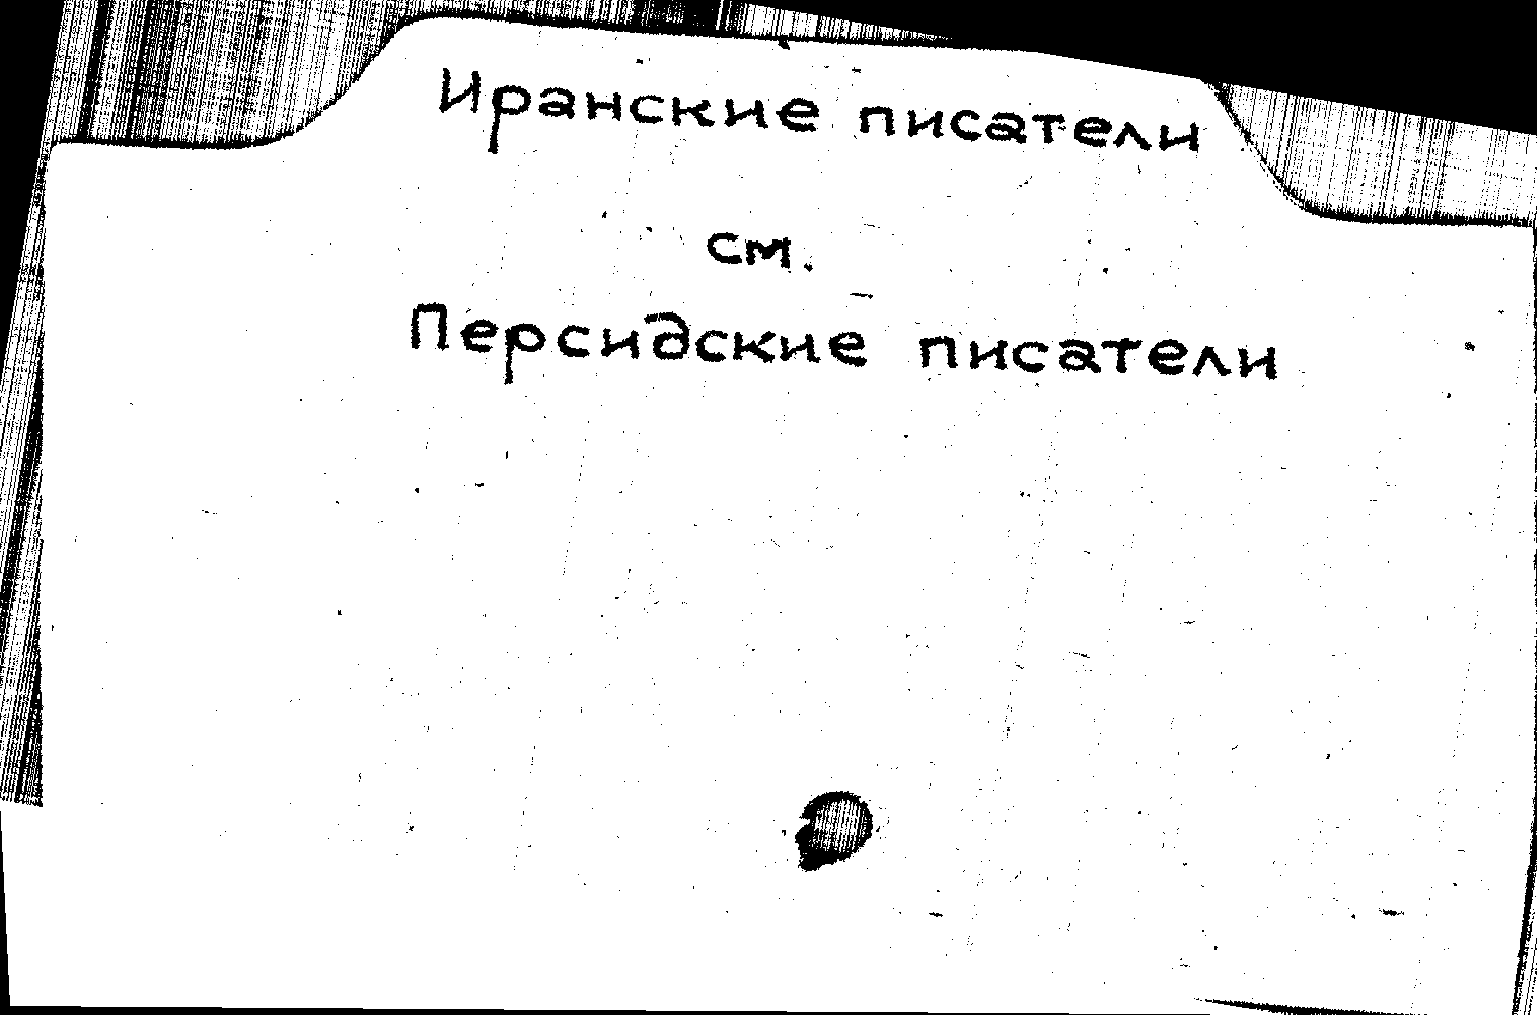 Иранские писатели
см.
Персидские писатели